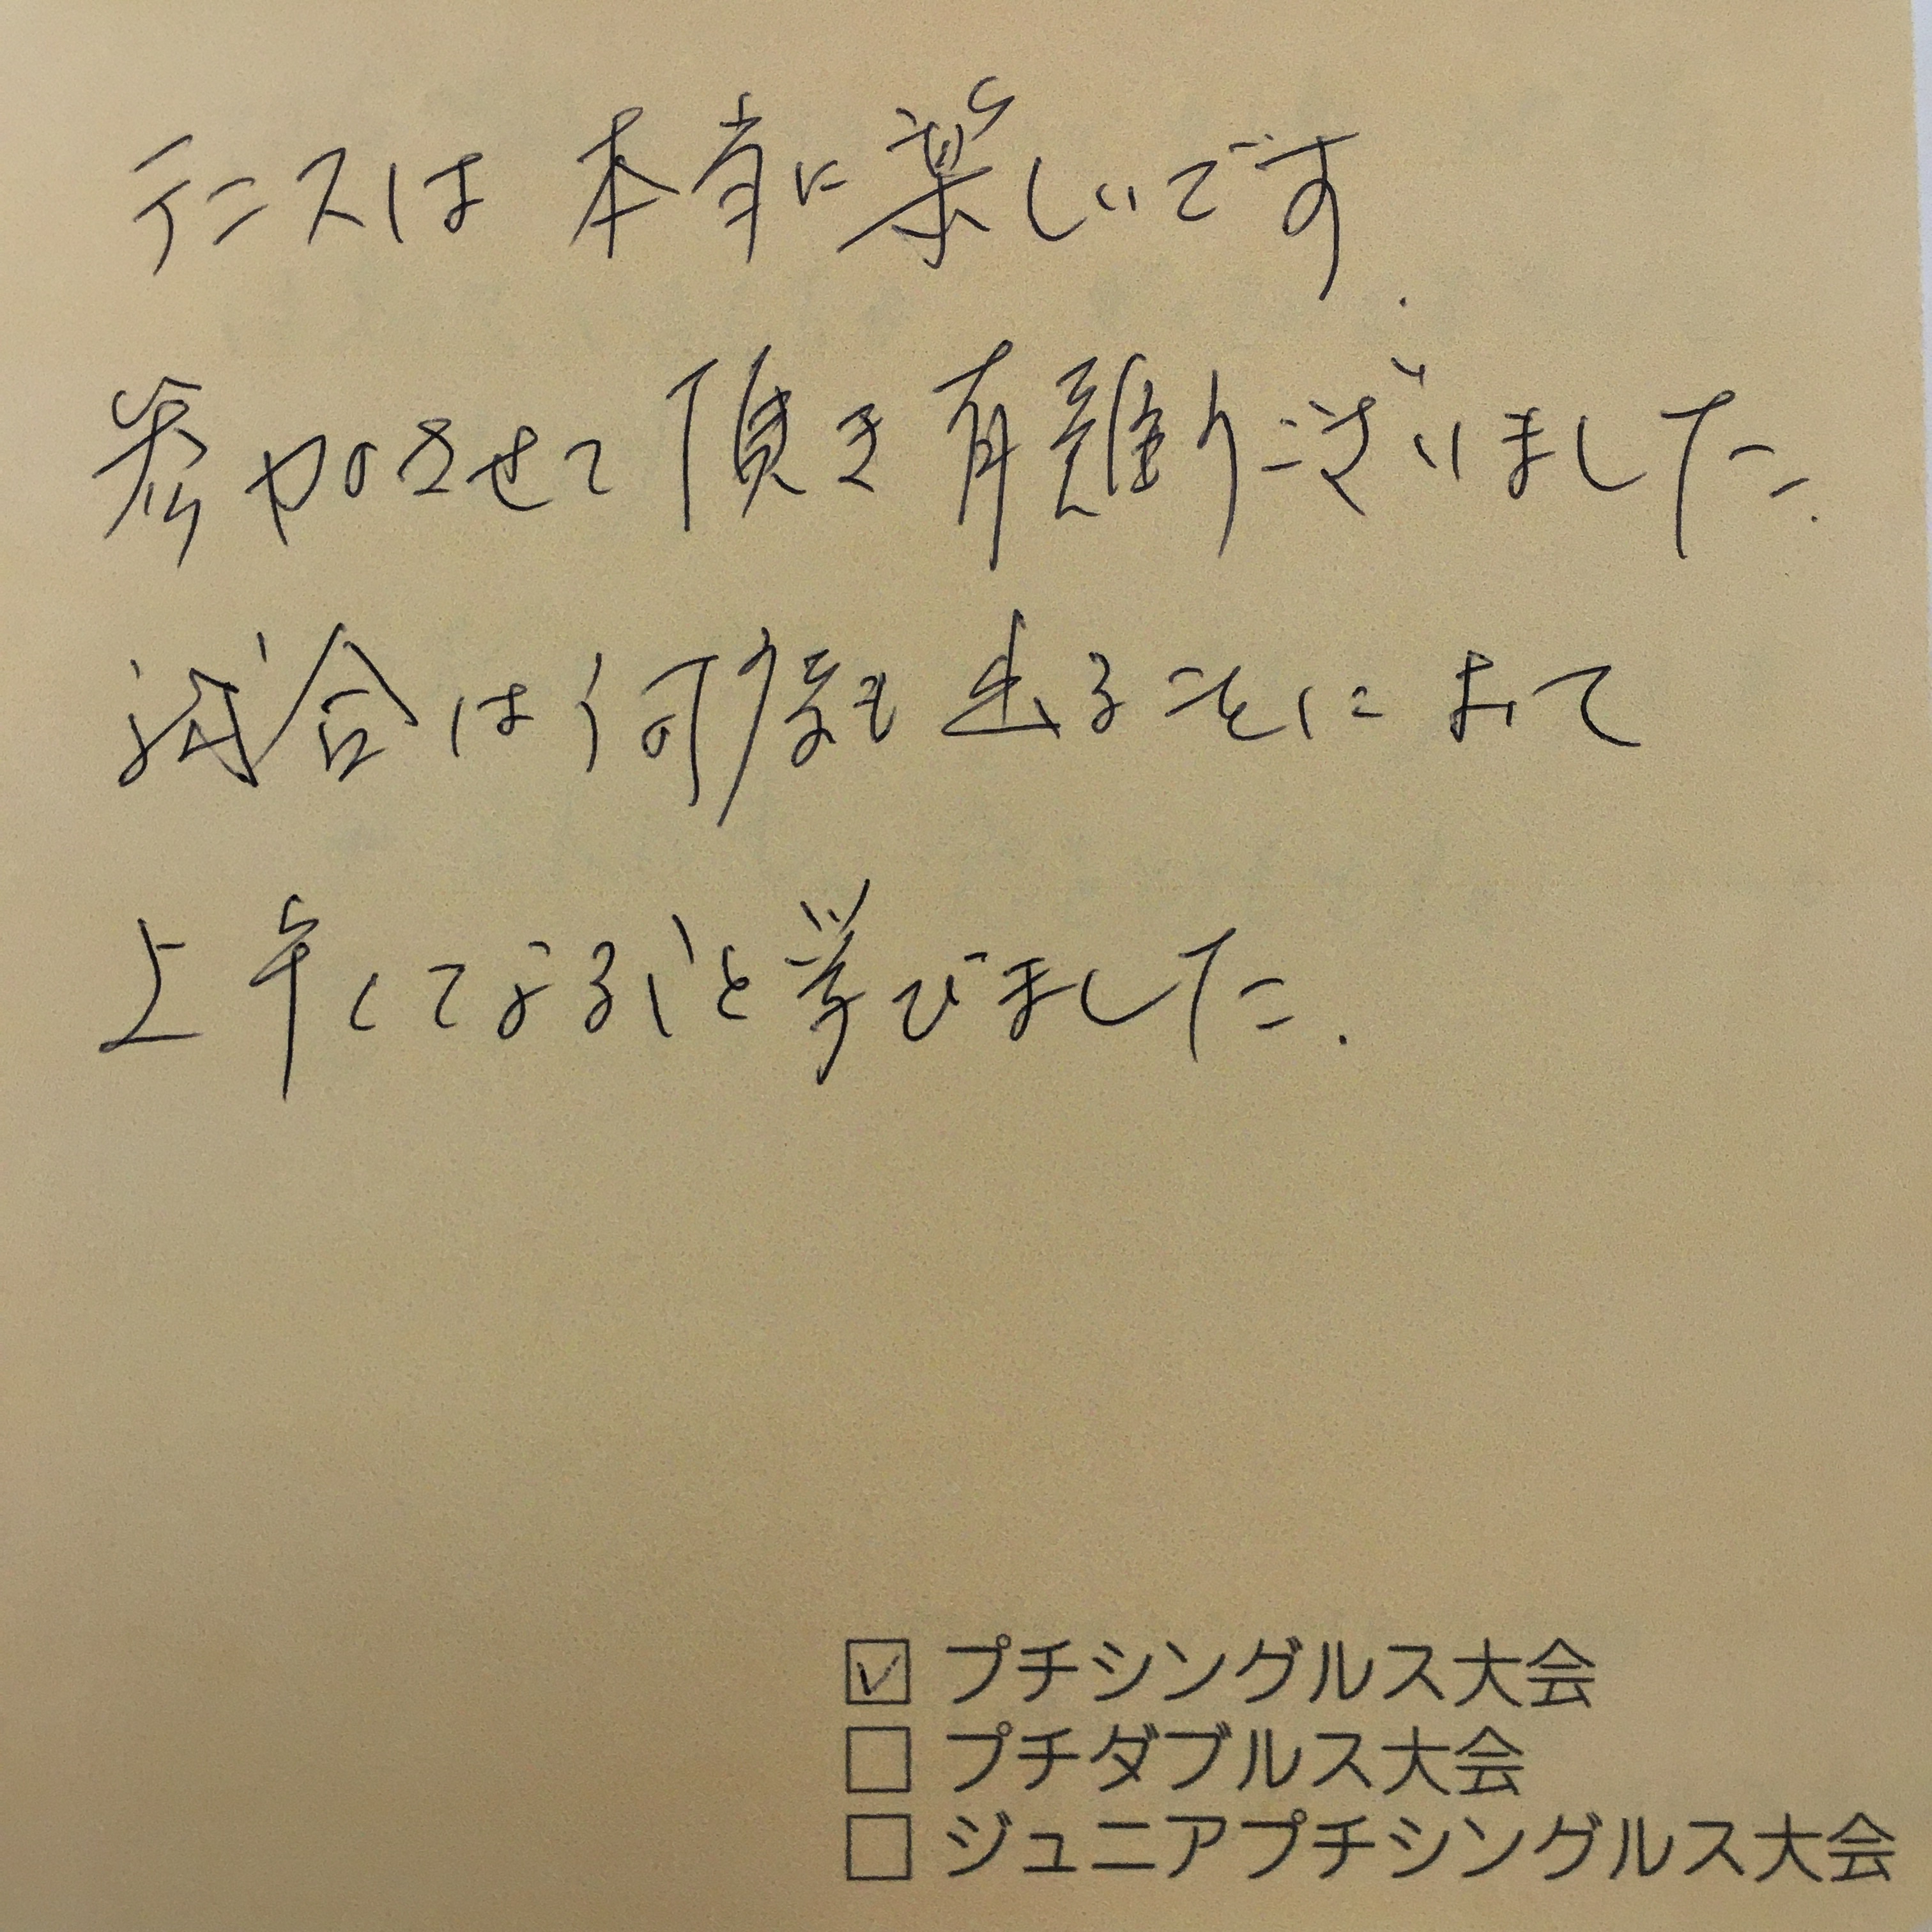 テニスは本当に楽しいです.
参加させて頂き有難うございました.
試合は何度も出ることによって
上手くなると学びました.
☑ プチシングルス大会
□ プチダブルス大会
□ ジュニアプチシングルス大会